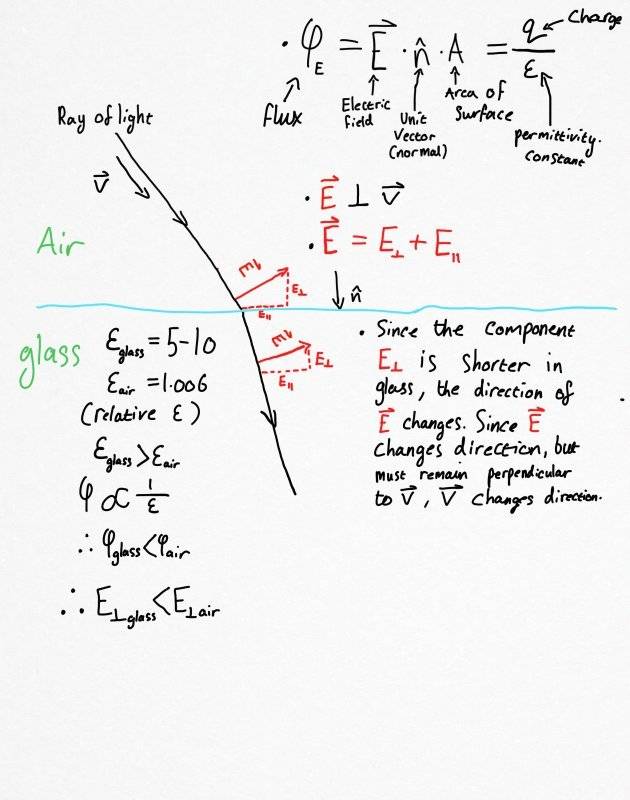 · φ_E = E⃗ · n̂ · A = q/ε
Charge
flux
Electric
field
Unit
Vector
(normal)
Area of
Surface
permittivity.
constant
Ray of light
V⃗
· E⃗ ⊥ V⃗
· E⃗ = E⊥ + E∥
Air
E⃗
E⊥
E∥
n̂
glass
ε_glass = 5-10
ε_air = 1.006
(relative ε)
ε_glass > ε_air
φ ∝ 1/ε
∴ φ_glass < φ_air
∴ E⊥glass < E⊥air
E⃗
E⊥
E∥
· Since the component
E⊥ is shorter in
glass, the direction of
E⃗ changes. Since E⃗
changes direction, but
must remain perpendicular
to V⃗, V⃗ changes direction.